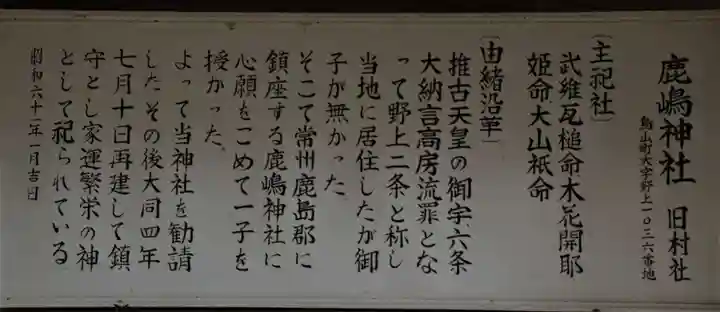 鹿嶋神社 旧村社
烏山町大字野上一〇三六番地
(主祀社)
武維瓦槌命木花開耶
姫命、大山祇命
(由緒沿革)
推古天皇の御宇、六条
大納言高房流罪とな
って野上二条と称し
当地に居住したが御
子が無かった
そこで常州鹿島郡に
鎮座する鹿嶋神社に
心願をこめて一子を
授かった、
よって当神社を勧請
したその後大同四年
七月十日再建して鎮
守とし家運繁栄の神
として祀られている
昭和六十一年一月吉日